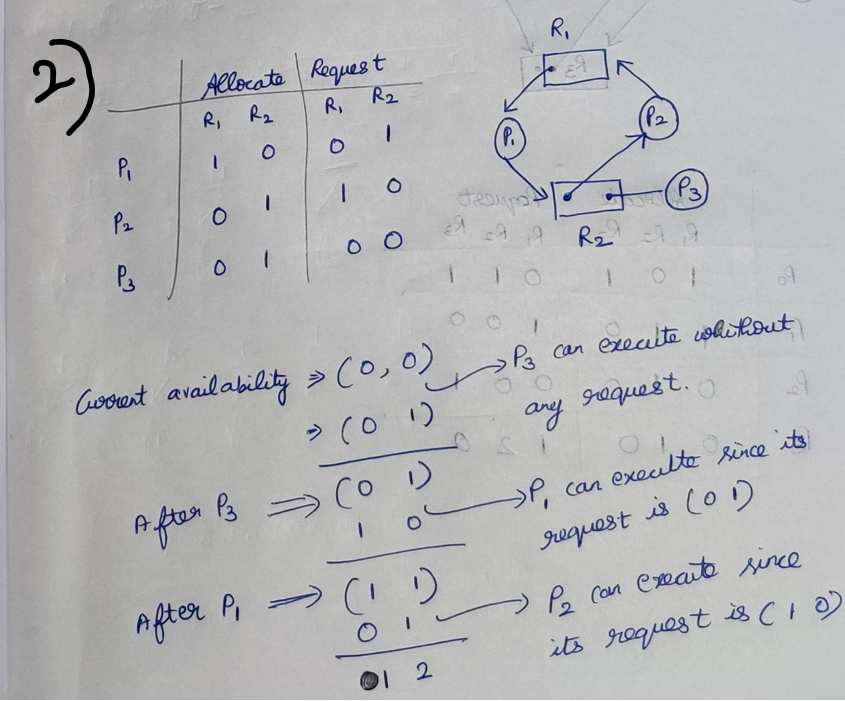 2)
Allocate Request
R₁ R₂ R₁ R₂
P₁ 1 0 0 1
P₂ 0 1 1 0
P₃ 0 1 0 0
R₁
P₁ P₂
P₃
R₂
Current availability ⇒ (0, 0) → P₃ can execute whithout
⇒ (0 1) any request.
After P₃ ⇒ (0 1) → P₁ can execulte since its
1 0 request is (0 1)
After P₁ ⇒ (1 1) → P₂ can execute since
0 1 its request is (1 0)
1 2